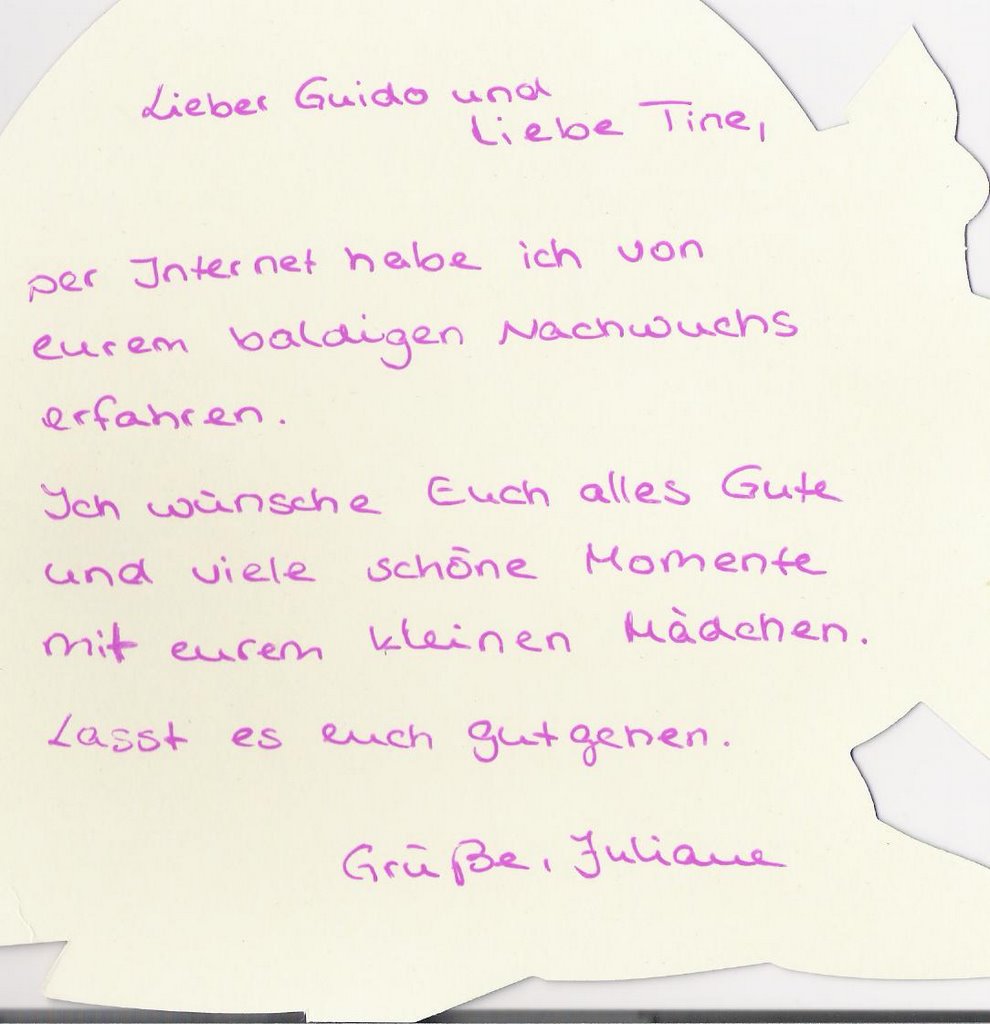 Lieber Guido und
Liebe Tine,
per Internet habe ich von
eurem baldigen Nachwuchs
erfahren.
Ich wünsche Euch alles Gute
und viele schöne Momente
mit eurem kleinen Mädchen.
Lasst es euch gutgehen.
Grüße, Juliane